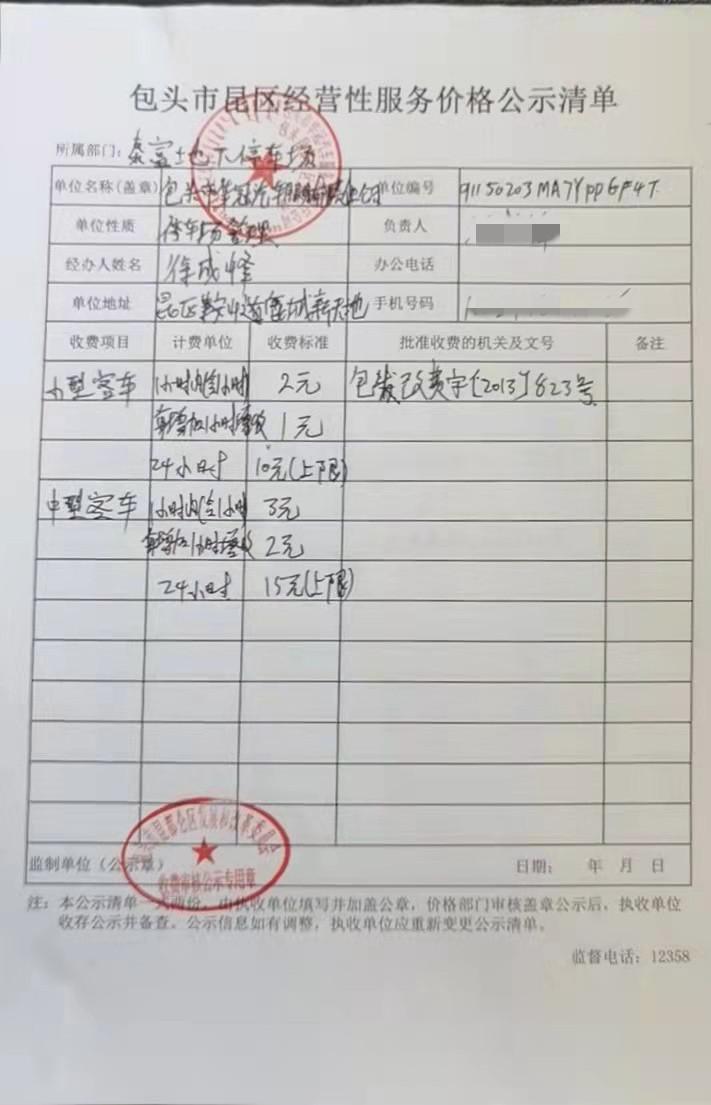 包头市昆区经营性服务价格公示清单
所属部门：泰富土地下停车场
单位名称(盖章) 包头市 单位编号
单位性质 停车场管理 负责人
经办人姓名 徐成 办公电话
单位地址 昆区 新天地 手机号码
收费项目 计费单位 收费标准 批准收费的机关及文号 备注
小型客车 1小时内(含1小时) 2元 包发改费字[2013]823号
每增加1小时增收 1元
24小时 10元(上限)
中型客车 1小时内(含1小时) 3元
每增加1小时增收 2元
24小时 15元(上限)
昆都仑区发展和改革委员会
收费审核公示专用章
监制单位（公示章） 日期： 年 月 日
注：本公示清单一式两份，由执收单位填写并加盖公章，价格部门审核盖章公示后，执收单位
收存公示并备查。公示信息如有调整，执收单位应重新变更公示清单。
监督电话：12358